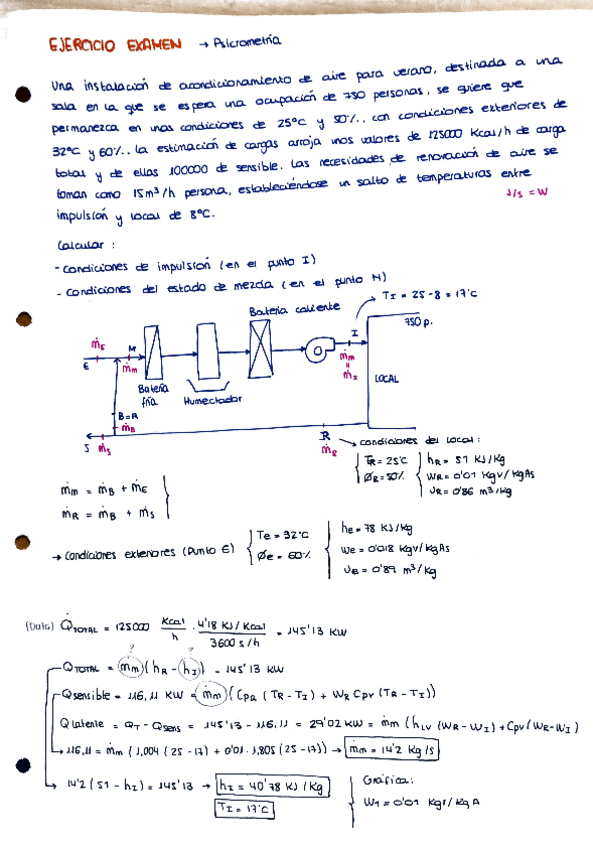 EJERCICIO EXAMEN → Psicrometría
Una instalación de acondicionamiento de aire para verano, destinada a una
sala en la que se espera una ocupación de 750 personas, se quiere que
permanezca en unas condiciones de 25°C y 50%, con condiciones exteriores de
32°C y 60%. La estimación de cargas arroja unos valores de 125000 Kcal/h de carga
total y de ellas 100000 de sensible. Las necesidades de renovación de aire se
toman como 15m³/h persona, estableciéndose un salto de temperaturas entre
impulsión y local de 8°C.
J/s = W
Calcular:
- Condiciones de impulsión (en el punto I)
- Condiciones del estado de mezcla (en el punto M)
TI = 25-8 = 17°C
Batería caliente
750 p.
ṁE
M
I
E
ṁm
ṁm
=
ṁI
Batería
fría
Humectador
LOCAL
B=R
ṁB
S ṁS
R
ṁR
condiciones del local:
TR = 25°C
ØR = 50%
hR = 51 KJ/Kg
WR = 0'01 Kgv/KgAs
VR = 0'86 m³/Kg
ṁm = ṁB + ṁE
ṁR = ṁB + ṁS
→ Condiciones exteriores (Punto E)
Te = 32°C
Øe = 60%
he = 78 KJ/Kg
We = 0'018 Kgv/KgAs
Ve = 0'89 m³/Kg
(Dato) Q̇TOTAL = 125000 Kcal/h · 4'18 KJ/Kcal / 3600 s/h = 145'13 KW
? ?
QTOTAL = ṁm (hR - hI) = 145'13 KW
Qsensible = 116,11 KW = ṁm (CPA (TR - TI) + WR CPV (TR - TI))
Qlatente = QT - QSENS = 145'13 - 116,11 = 29'02 KW = ṁm (hLV (WR - WI) + CPV (WR - WI)
→ 116,11 = ṁm (1,004 (25-17) + 0'01 · 1,805 (25-17)) → ṁm = 14'2 Kg/s
→ 14'2 (51 - hI) = 145'13 → hI = 40'78 KJ/Kg
TI = 17°C
Gráfica:
WI = 0'01 Kgv/KgA